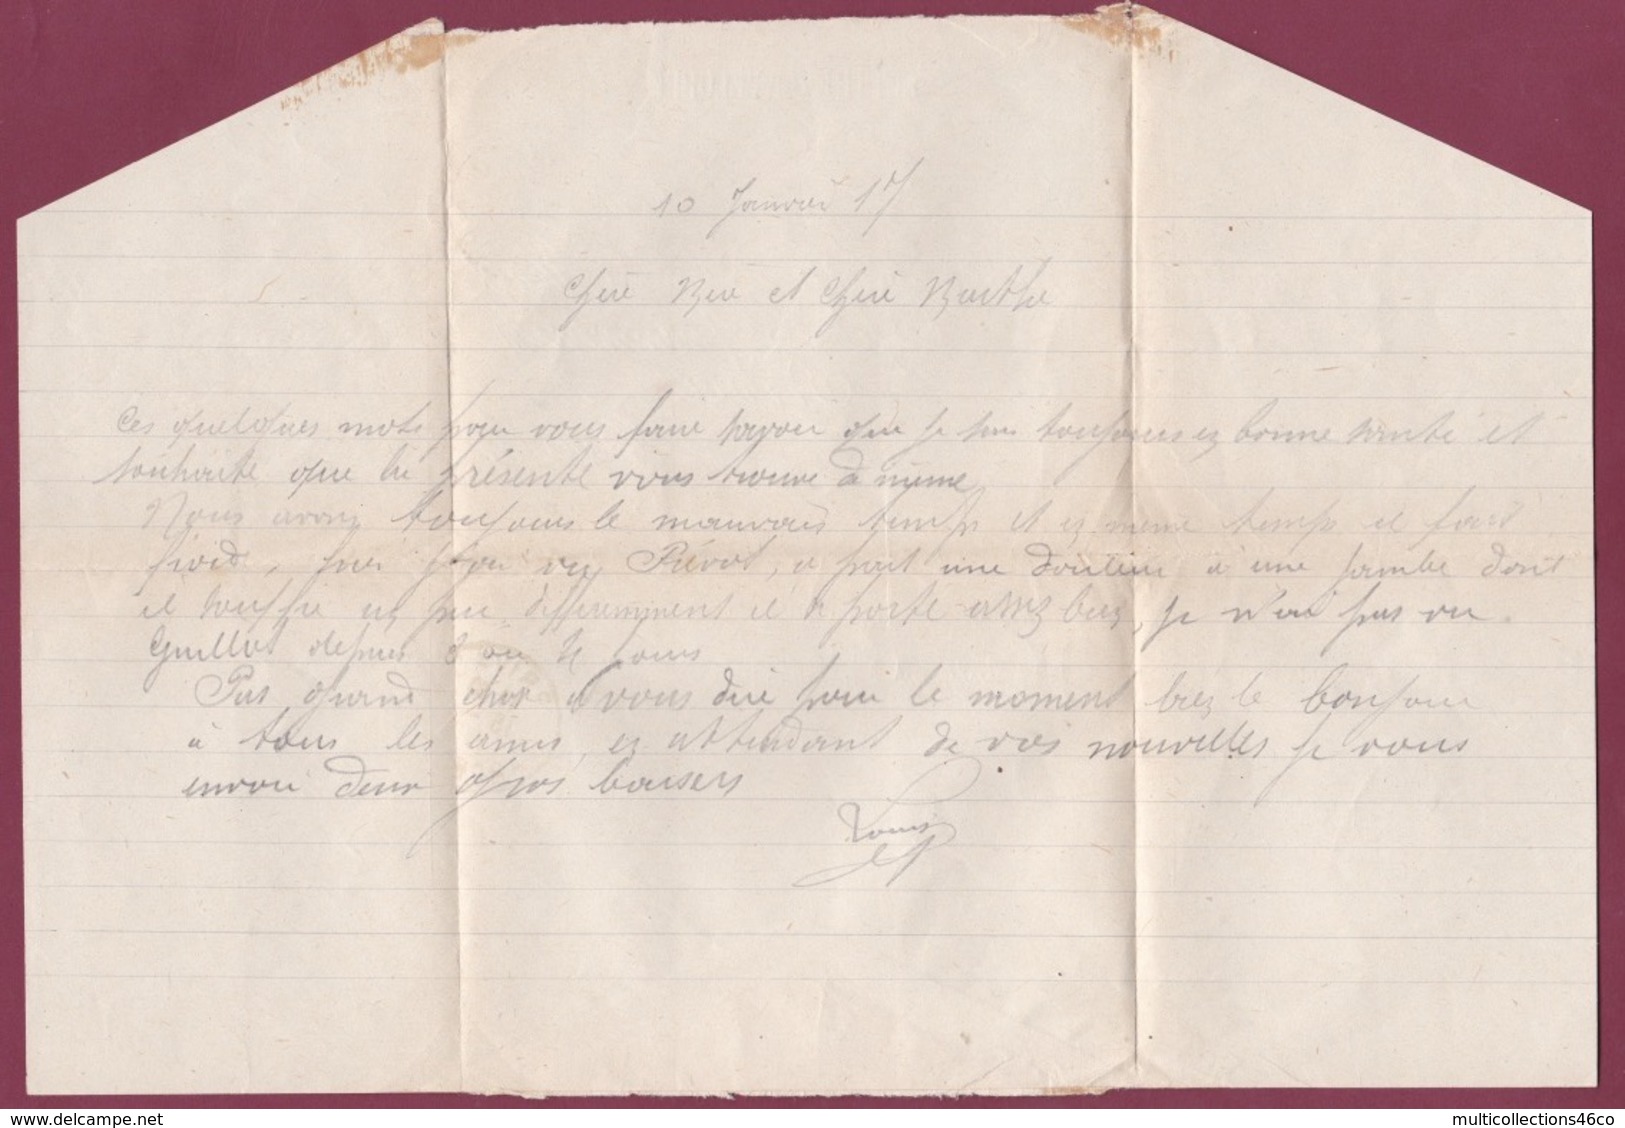 10 Janvier 17
Chère Mère et Chère Marthe
Ces quelques mots pour vous faire savoir que je suis toujours en bonne santé et
souhaite que la présente vous trouve de même
Nous avons toujours le mauvais temps et en même temps il fait
froid, Prévot, a une douleur à une jambe dont
il souffre un peu, differemment il se porte assez bien, je n'ai pas vu
Guillot depuis 3 ou 4 jours
Pas grand chose à vous dire pour le moment bien le bonjour
à tous les amis, en attendant de vos nouvelles je vous
envoie deux gros baisers
Louis
delcampe.net
multicollections46co